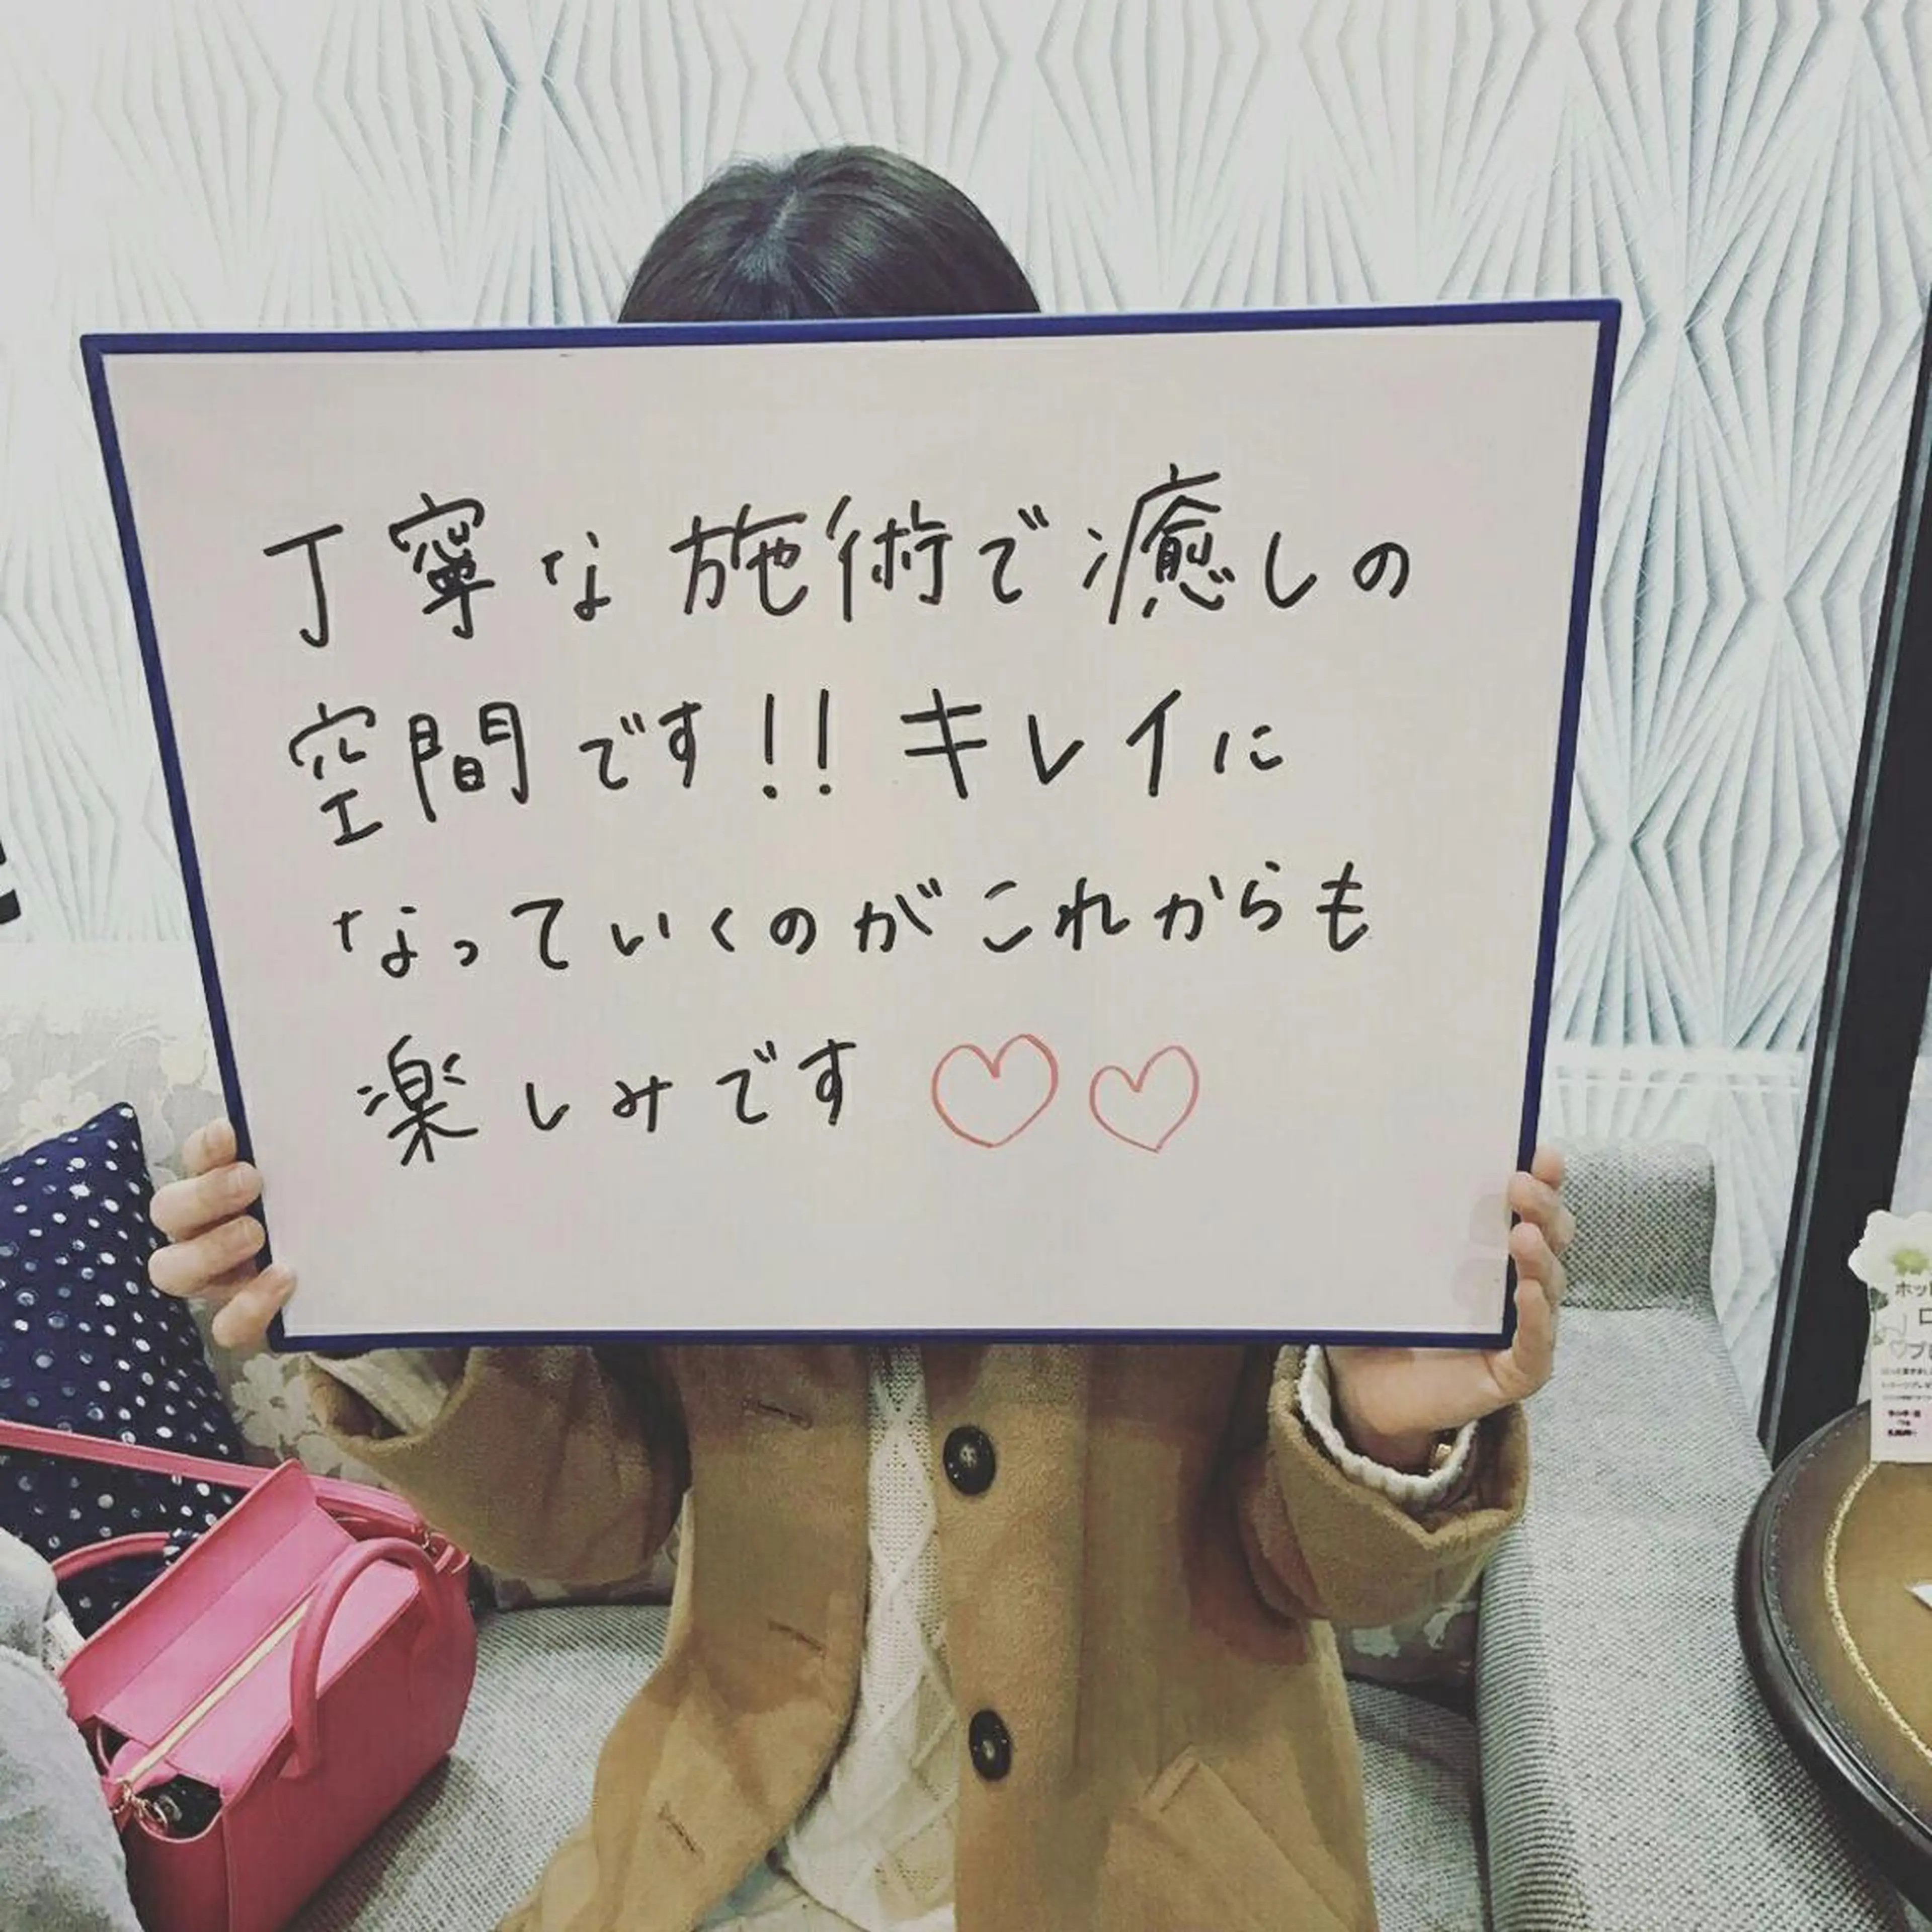 丁寧な施術で癒しの
空間です!! キレイに
なっていくのがこれからも
楽しみです♡♡
ホッ